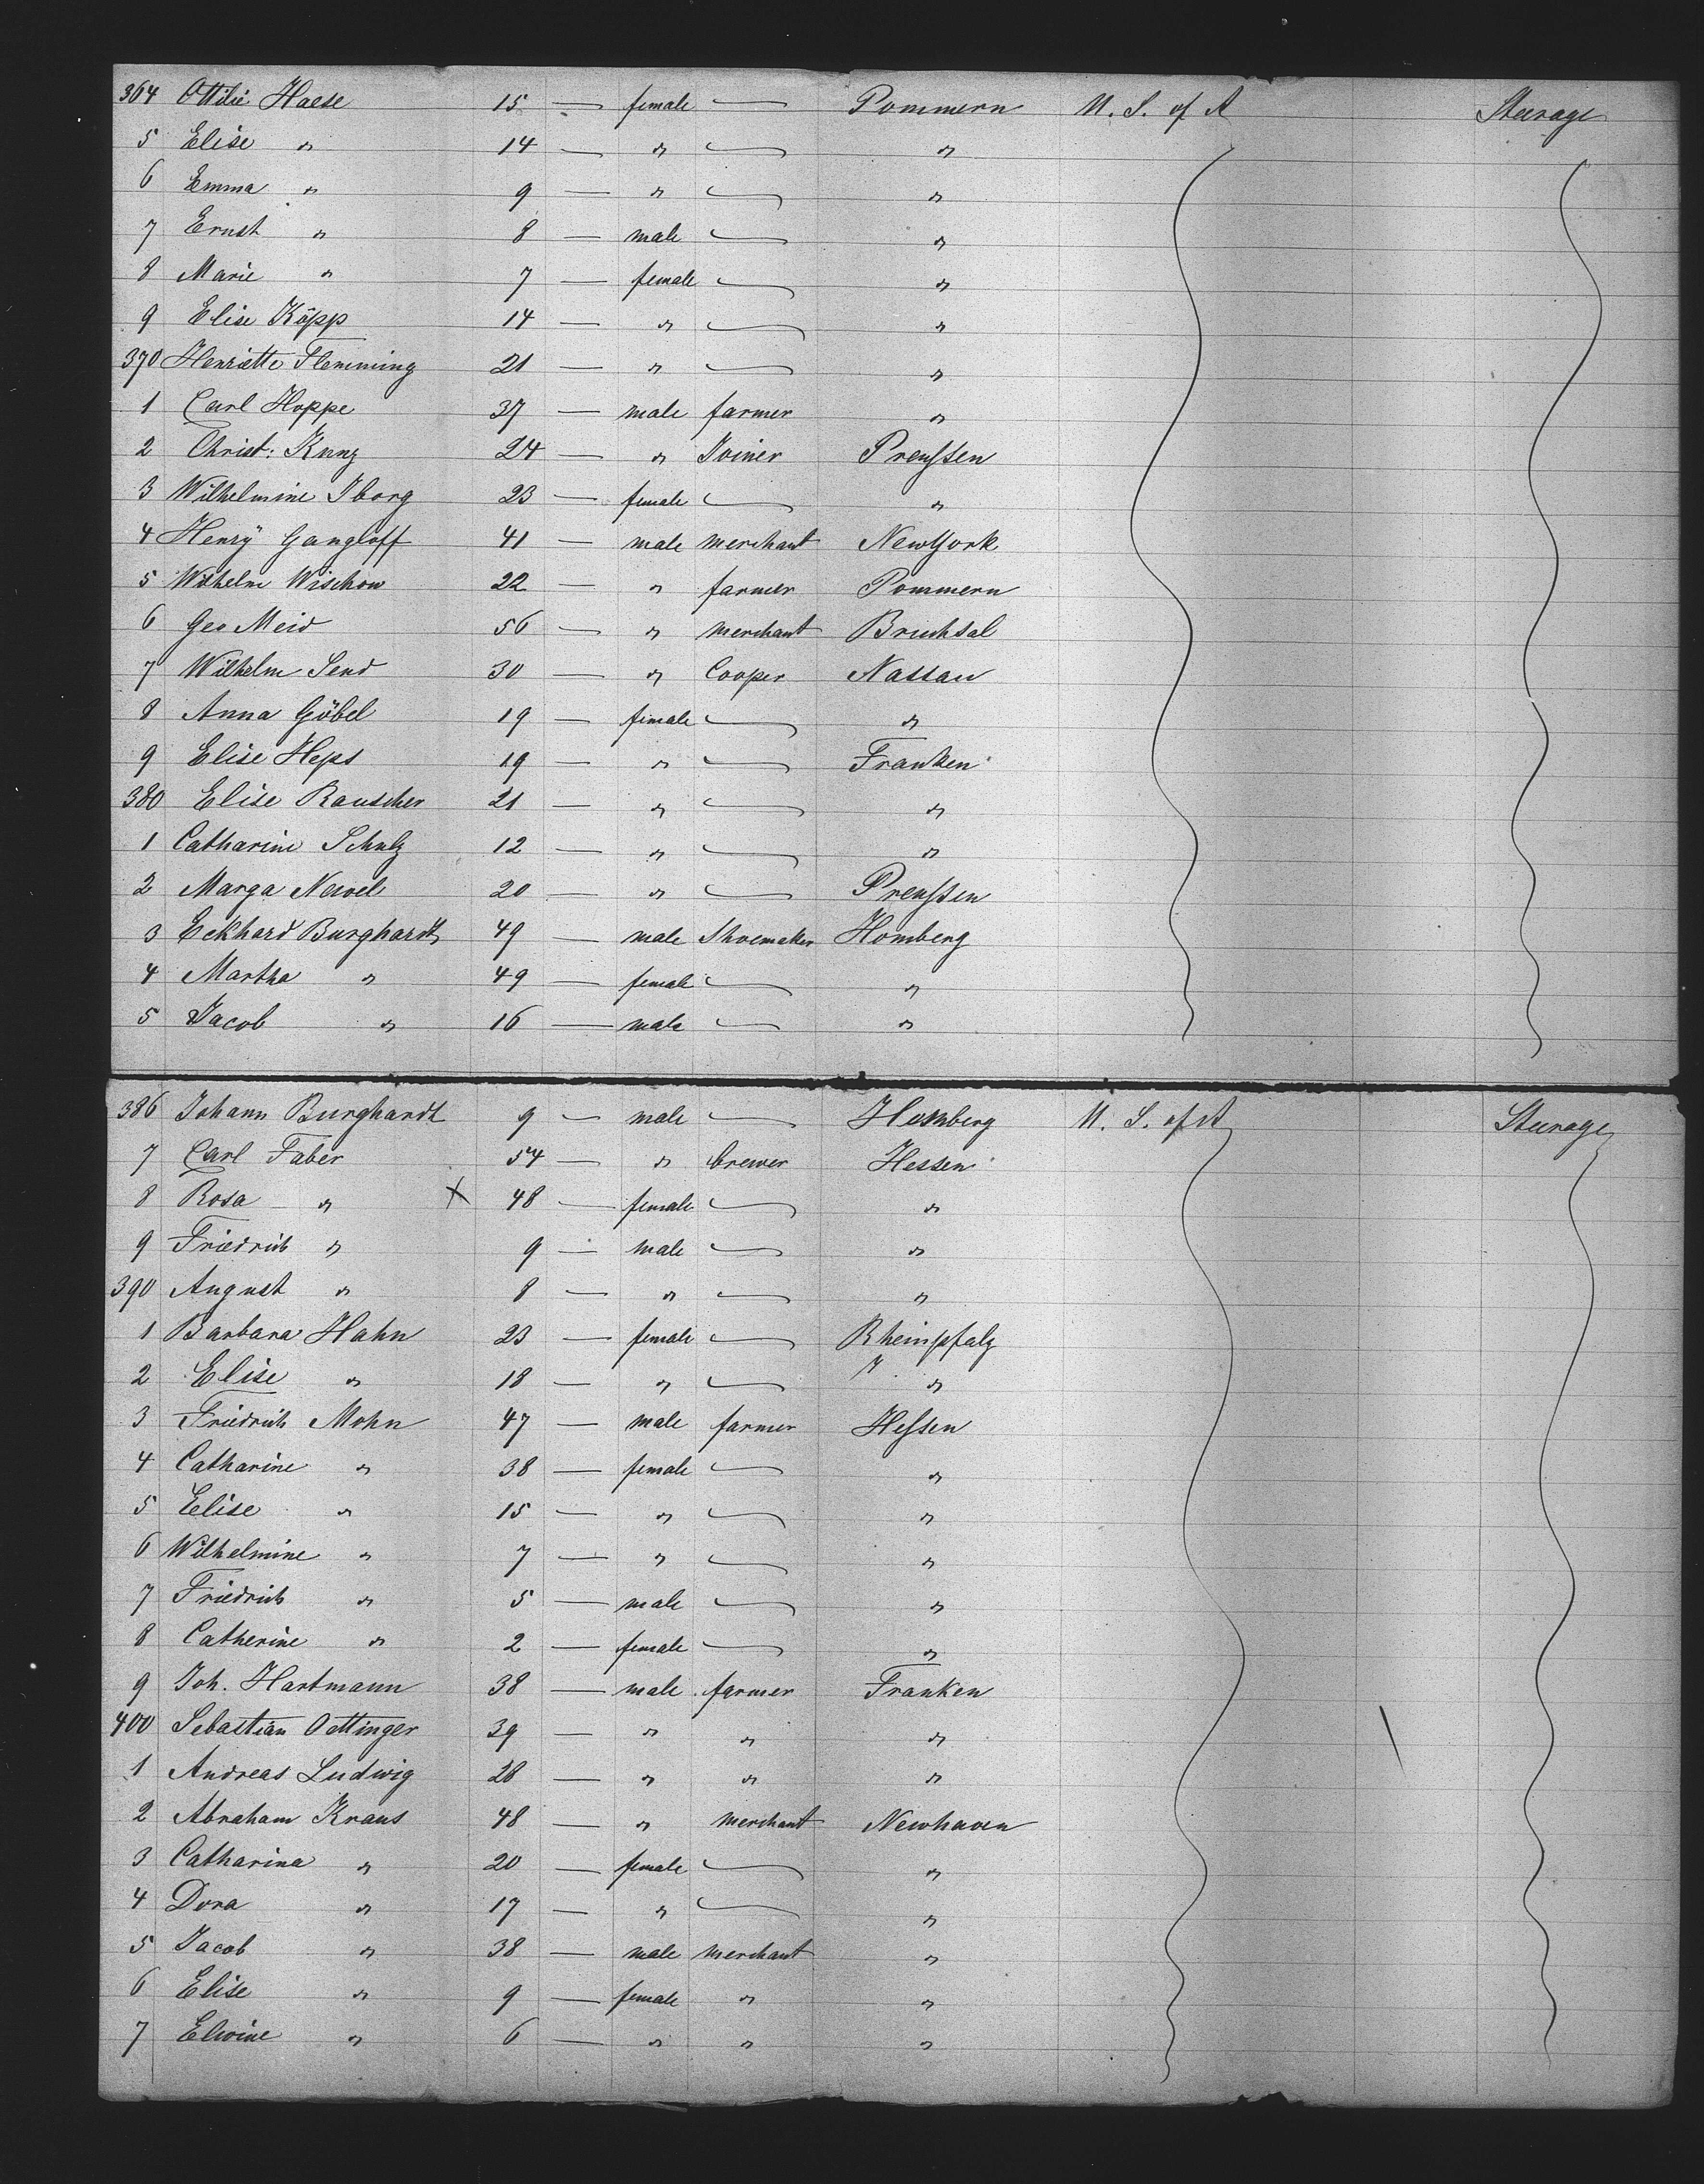 364 Ottilie Haese 15 — female — Pommern U. S. of A Steerage
5 Elise " 14 — " — "
6 Emma " 9 — " — "
7 Ernst " 8 — male — "
8 Marie " 7 — female — "
9 Elise Köpp 14 — " — "
370 Henriette Flemming 21 — " — "
1 Carl Hoppe 37 — male farmer "
2 Christ: Kunz 24 — " Joiner Preussen
3 Wilhelmine Iborg 23 — female — "
4 Henry Gangloff 41 — male merchant NewYork
5 Wilhelm Wischow 22 — " farmer Pommern
6 Geo Meid 56 — " merchant Bruchsal
7 Wilhelm Send 30 — " Cooper Nassau
8 Anna Göbel 19 — female — "
9 Elise Heps 19 — " — Franken
380 Elise Rauscher 21 — " — "
1 Catharine Schulz 12 — " — "
2 Marga Newel 20 — " — Preussen
3 Eckhard Burghardt 49 — male Shoemaker Homberg
4 Martha " 49 — female — "
5 Jacob " 16 — male — "
386 Johann Burghardt 9 — male — Homberg U. S. of A Steerage
7 Carl Faber 54 — " brewer Hessen
8 Rosa " X 48 — female — "
9 Friedrich " 9 — male — "
390 August " 8 — " — "
1 Barbara Hahn 23 — female — Rheinpfalz
2 Elise " 18 — " — "
3 Friedrich Mohn 47 — male farmer Hessen
4 Catharine " 38 — female — "
5 Elise " 15 — " — "
6 Wilhelmine " 7 — " — "
7 Friedrich " 5 — male — "
8 Catherine " 2 — female — "
9 Joh. Hartmann 38 — male farmer Franken
400 Sebastian Oettinger 39 — " " "
1 Andreas Ludwig 28 — " " "
2 Abraham Kraus 48 — " merchant Newhaven
3 Catharina " 20 — female — "
4 Dora " 17 — " — "
5 Jacob " 38 — male merchant "
6 Elise " 9 — female " "
7 Elwine " 6 — " " "